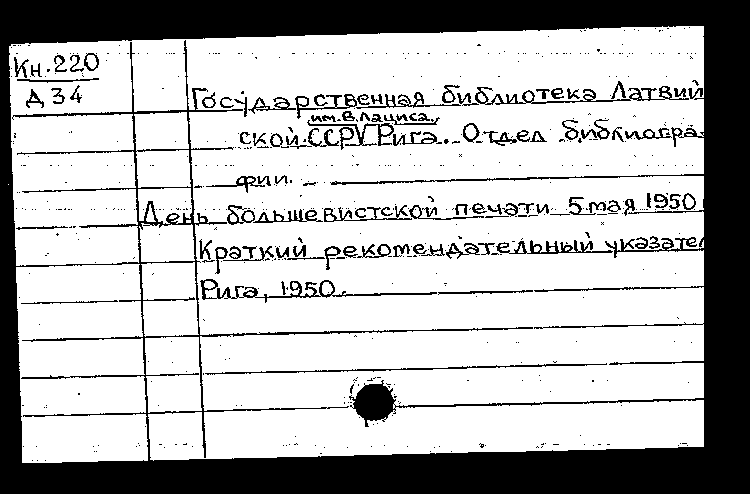 Кн.220
Д 34
Государственная библиотека Латвий
им. В. Лациса,
ской ССР, Рига. Отдел библиогра-
фии. –
День большевистской печати 5 мая 1950
Краткий рекомендательный указател
Рига, 1950.